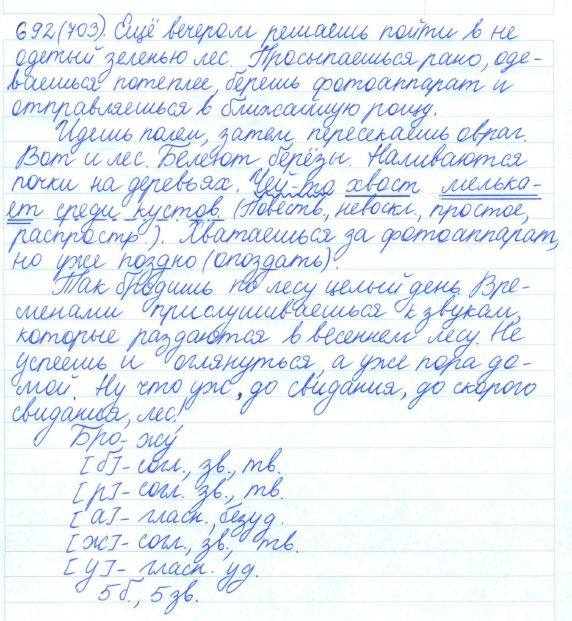 692(703). Ещё вечером решаешь пойти в не
одетый зеленью лес. Просыпаешься рано, оде-
ваешься потеплее, берёшь фотоаппарат и
отправляешься в ближайшую рощу.
Идёшь полем, затем пересекаешь овраг.
Вот и лес. Белеют берёзы. Наливаются
почки на деревьях. Чей-то хвост мелька-
ет среди кустов. (Повеств., невоскл., простое,
распростр.). Хватаешься за фотоаппарат,
но уже поздно (опоздать).
Так бродишь по лесу целый день. Вре-
менами прислушиваешься к звукам,
которые раздаются в весеннем лесу. Не
успеешь и оглянуться, а уже пора до-
мой. Ну что уж, до свидания, до скорого
свидания, лес!
Бро-жу́
[б]- согл., зв., тв.
[р]- согл. зв., тв.
[а]- гласн., безуд.
[ж]- согл., зв., тв.
[у]- гласн. уд.
5б., 5зв.